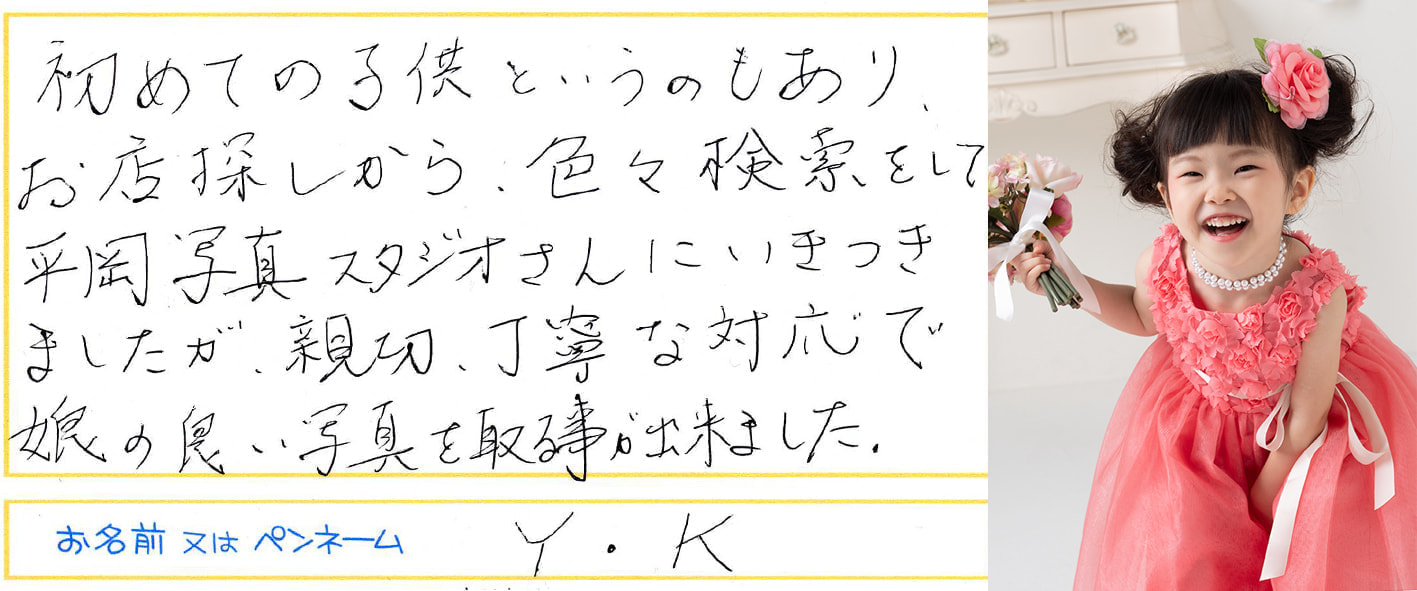 初めての子供というのもあり、
お店探しから、色々検索をして
平岡写真スタジオさんにいきつき
ましたが、親切、丁寧な対応で
娘の良い写真を取る事が出来ました。
お名前 又は ペンネーム Y・K